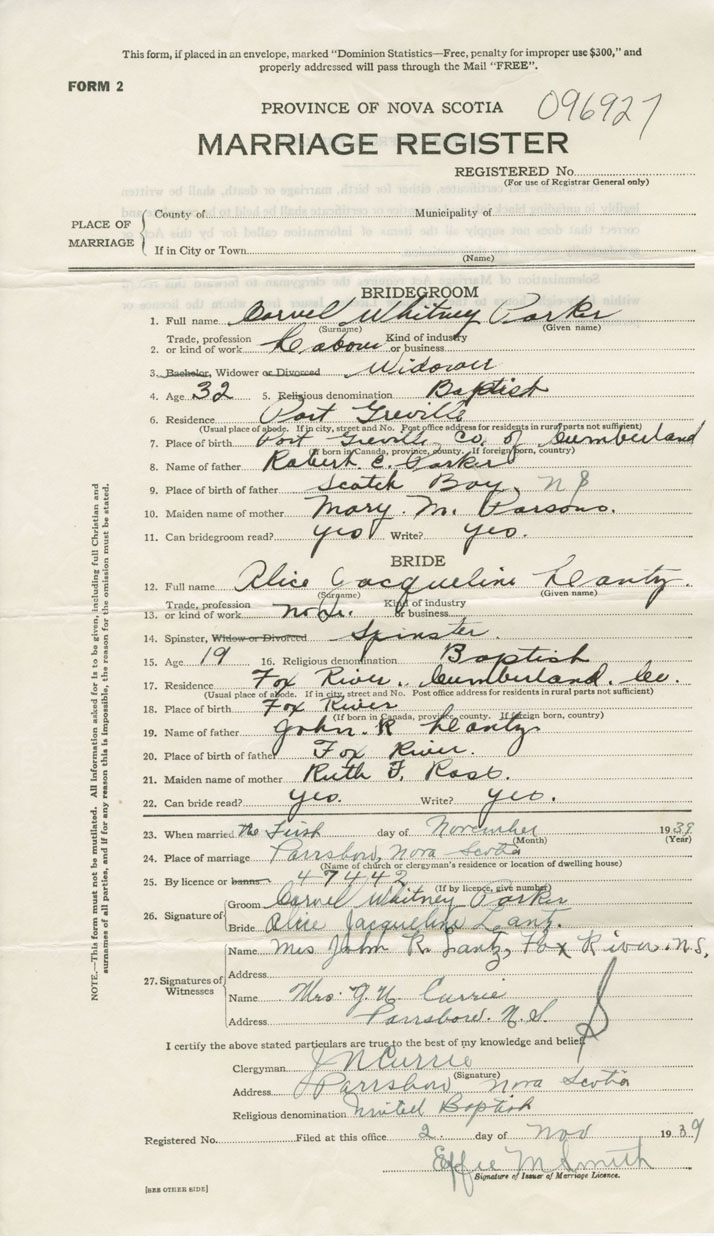 This form, if placed in an envelope, marked "Dominion Statistics—Free, penalty for improper use $300," and
properly addressed will pass through the Mail "FREE".
FORM 2
PROVINCE OF NOVA SCOTIA 096927
MARRIAGE REGISTER
REGISTERED No.
(For use of Registrar General only)
PLACE OF MARRIAGE
County of Municipality of
If in City or Town
(Name)
BRIDEGROOM
1. Full name Corvel Whitney Parker
(Surname) (Given name)
2. Trade, profession or kind of work Labour Kind of industry or business
3. Bachelor, Widower or Divorced Widower
4. Age 32 5. Religious denomination Baptist
6. Residence Port Greville
(Usual place of abode. If in city, street and No. Post office address for residents in rural parts not sufficient)
7. Place of birth Port Greville Co. of Cumberland
(If born in Canada, province, county. If foreign born, country)
8. Name of father Robert E. Parker
9. Place of birth of father Scotch Bay, NS
10. Maiden name of mother Mary. M. Parsons.
11. Can bridegroom read? yes Write? yes.
BRIDE
12. Full name Alice Jacqueline Lantz.
(Surname) (Given name)
13. Trade, profession or kind of work Kind of industry or business
14. Spinster, Widow or Divorced Spinster.
15. Age 19 16. Religious denomination Baptist
17. Residence Fox River. Cumberland. Co.
(Usual place of abode. If in city, street and No. Post office address for residents in rural parts not sufficient)
18. Place of birth Fox River
(If born in Canada, province, county. If foreign born, country)
19. Name of father John. R Lantz
20. Place of birth of father Fox River.
21. Maiden name of mother Ruth F. Ross.
22. Can bride read? yes. Write? yes.
23. When married the First day of November 1939
(Month) (Year)
24. Place of marriage Parrsboro, Nova Scotia
(Name of church or clergyman's residence or location of dwelling house)
25. By licence or banns 47442
(If by licence, give number)
26. Signature of
Groom Corvel Whitney Parker
Bride Alice Jacqueline Lantz.
27. Signatures of Witnesses
Name Mrs John R. Lantz, Fox River. N.S.
Address
Name Mrs. J. N. Currie
Address Parrsboro. N.S.
I certify the above stated particulars are true to the best of my knowledge and belief.
Clergyman J N Currie
(Signature)
Address Parrsboro Nova Scotia
Religious denomination United Baptist
Registered No. Filed at this office 2. day of Nov 1939
Effie M Smith
Signature of Issuer of Marriage Licence.
[SEE OTHER SIDE]
NOTE.—This form must not be mutilated. All information asked for is to be given, including full Christian and
surnames of all parties, and if for any reason this is impossible, the reason for the omission must be stated.